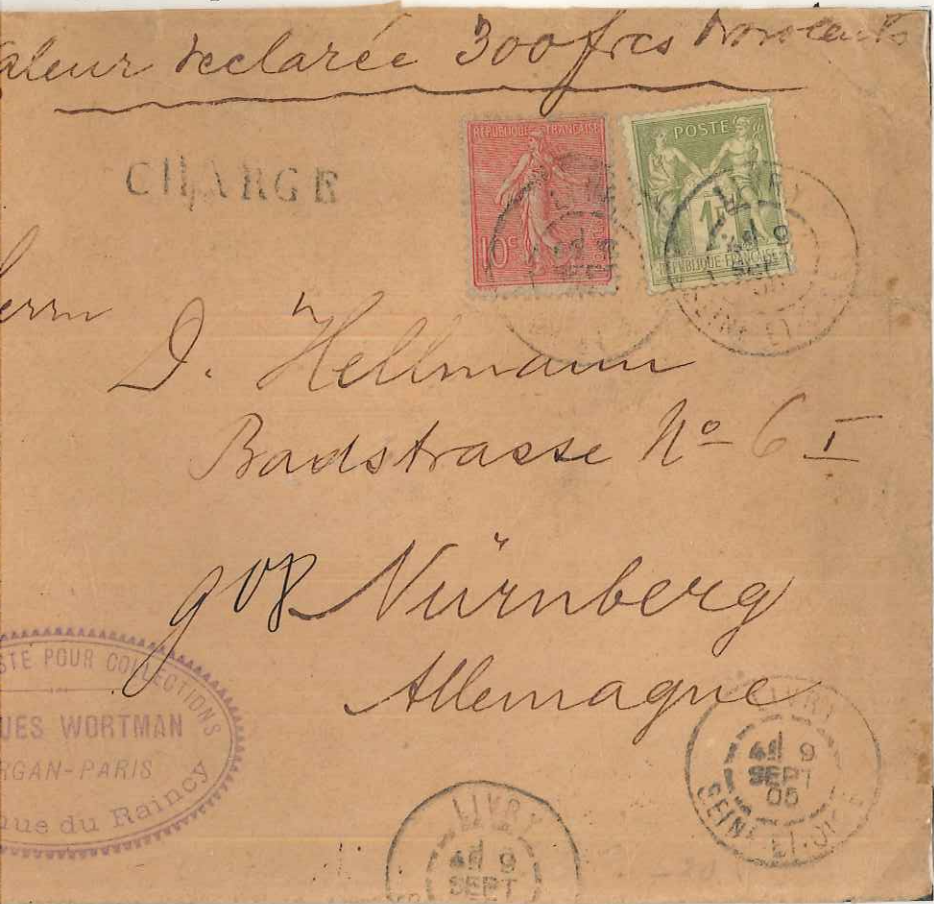 aleur declarée 300 frcs
CHARGE
REPUBLIQUE FRANCAISE
10c
POSTE
1F
REPUBLIQUE FRANÇAISE
LIVRY
9
SEINE ET OISE
errn
D. Hellmann
Badstrasse No 6 I
Nürnberg
Allemagne
STE POUR COLLECTIONS
UES WORTMAN
RGAN-PARIS
que du Raincy
LIVRY
9
SEPT
05
SEINE ET OISE
LIVRY
9
SEPT